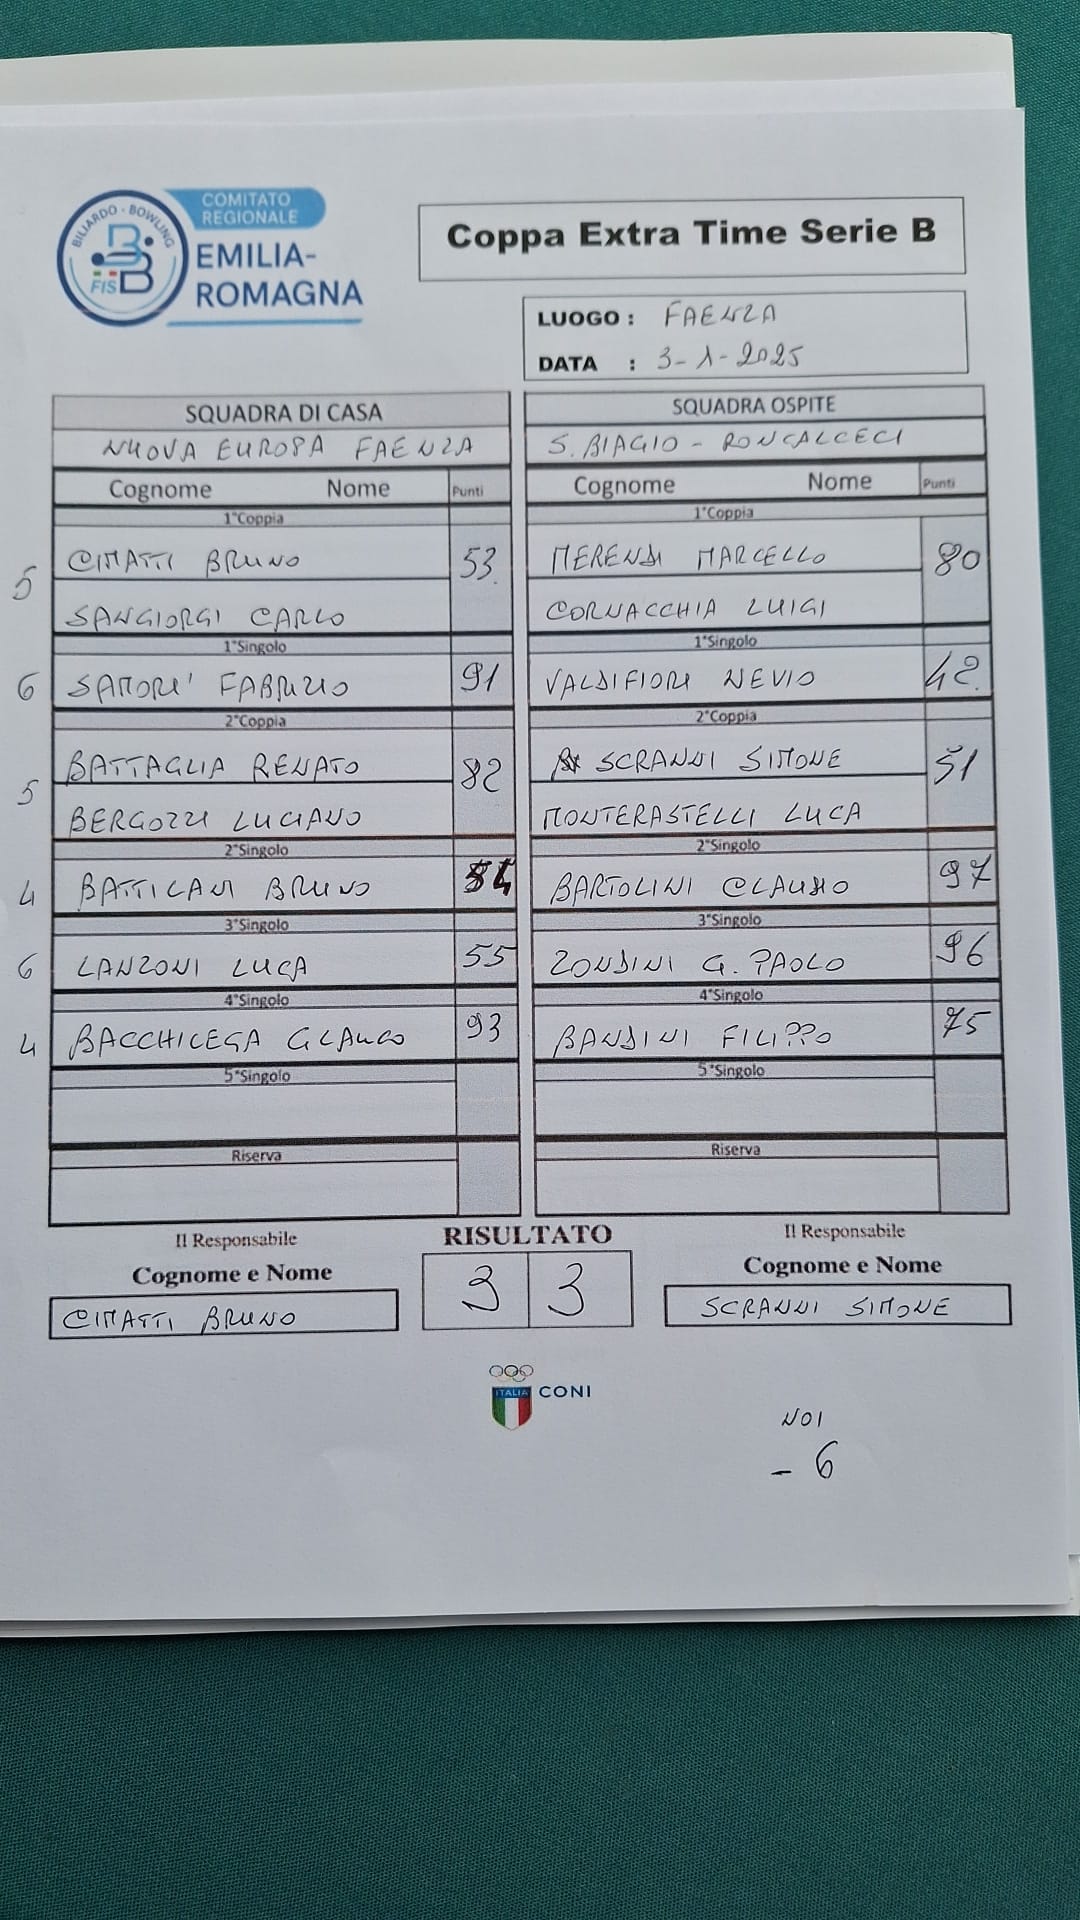 BILIARDO - BOWLING
FISBB
COMITATO
REGIONALE
EMILIA-
ROMAGNA
Coppa Extra Time Serie B
LUOGO : FAENZA
DATA : 3-1-2025
SQUADRA DI CASA SQUADRA OSPITE
NUOVA EUROPA FAENZA S. BIAGIO - RONCALCECI
Cognome Nome Punti Cognome Nome Punti
1°Coppia 1°Coppia
5 CIMATTI BRUNO 53 MERENDI MARCELLO 80
SANGIORGI CARLO CORNACCHIA LUIGI
1°Singolo 1°Singolo
6 SAMORI' FABRIZIO 91 VALDIFIORI NEVIO 42
2°Coppia 2°Coppia
5 BATTAGLIA RENATO 82 SCRANNI SIMONE 51
BERGOZZI LUCIANO MONTERASTELLI LUCA
2°Singolo 2°Singolo
4 BATTILANI BRUNO BARTOLINI CLAUDIO 97
3°Singolo 3°Singolo
6 LANZONI LUCA 55 ZONDINI G. PAOLO 96
4°Singolo 4°Singolo
4 BACCHILEGA GLAUCO 93 BANDINI FILIPPO 75
5°Singolo 5°Singolo
Riserva Riserva
Il Responsabile RISULTATO Il Responsabile
Cognome e Nome Cognome e Nome
CIMATTI BRUNO 3 3 SCRANNI SIMONE
ITALIA CONI
NOI
- 6